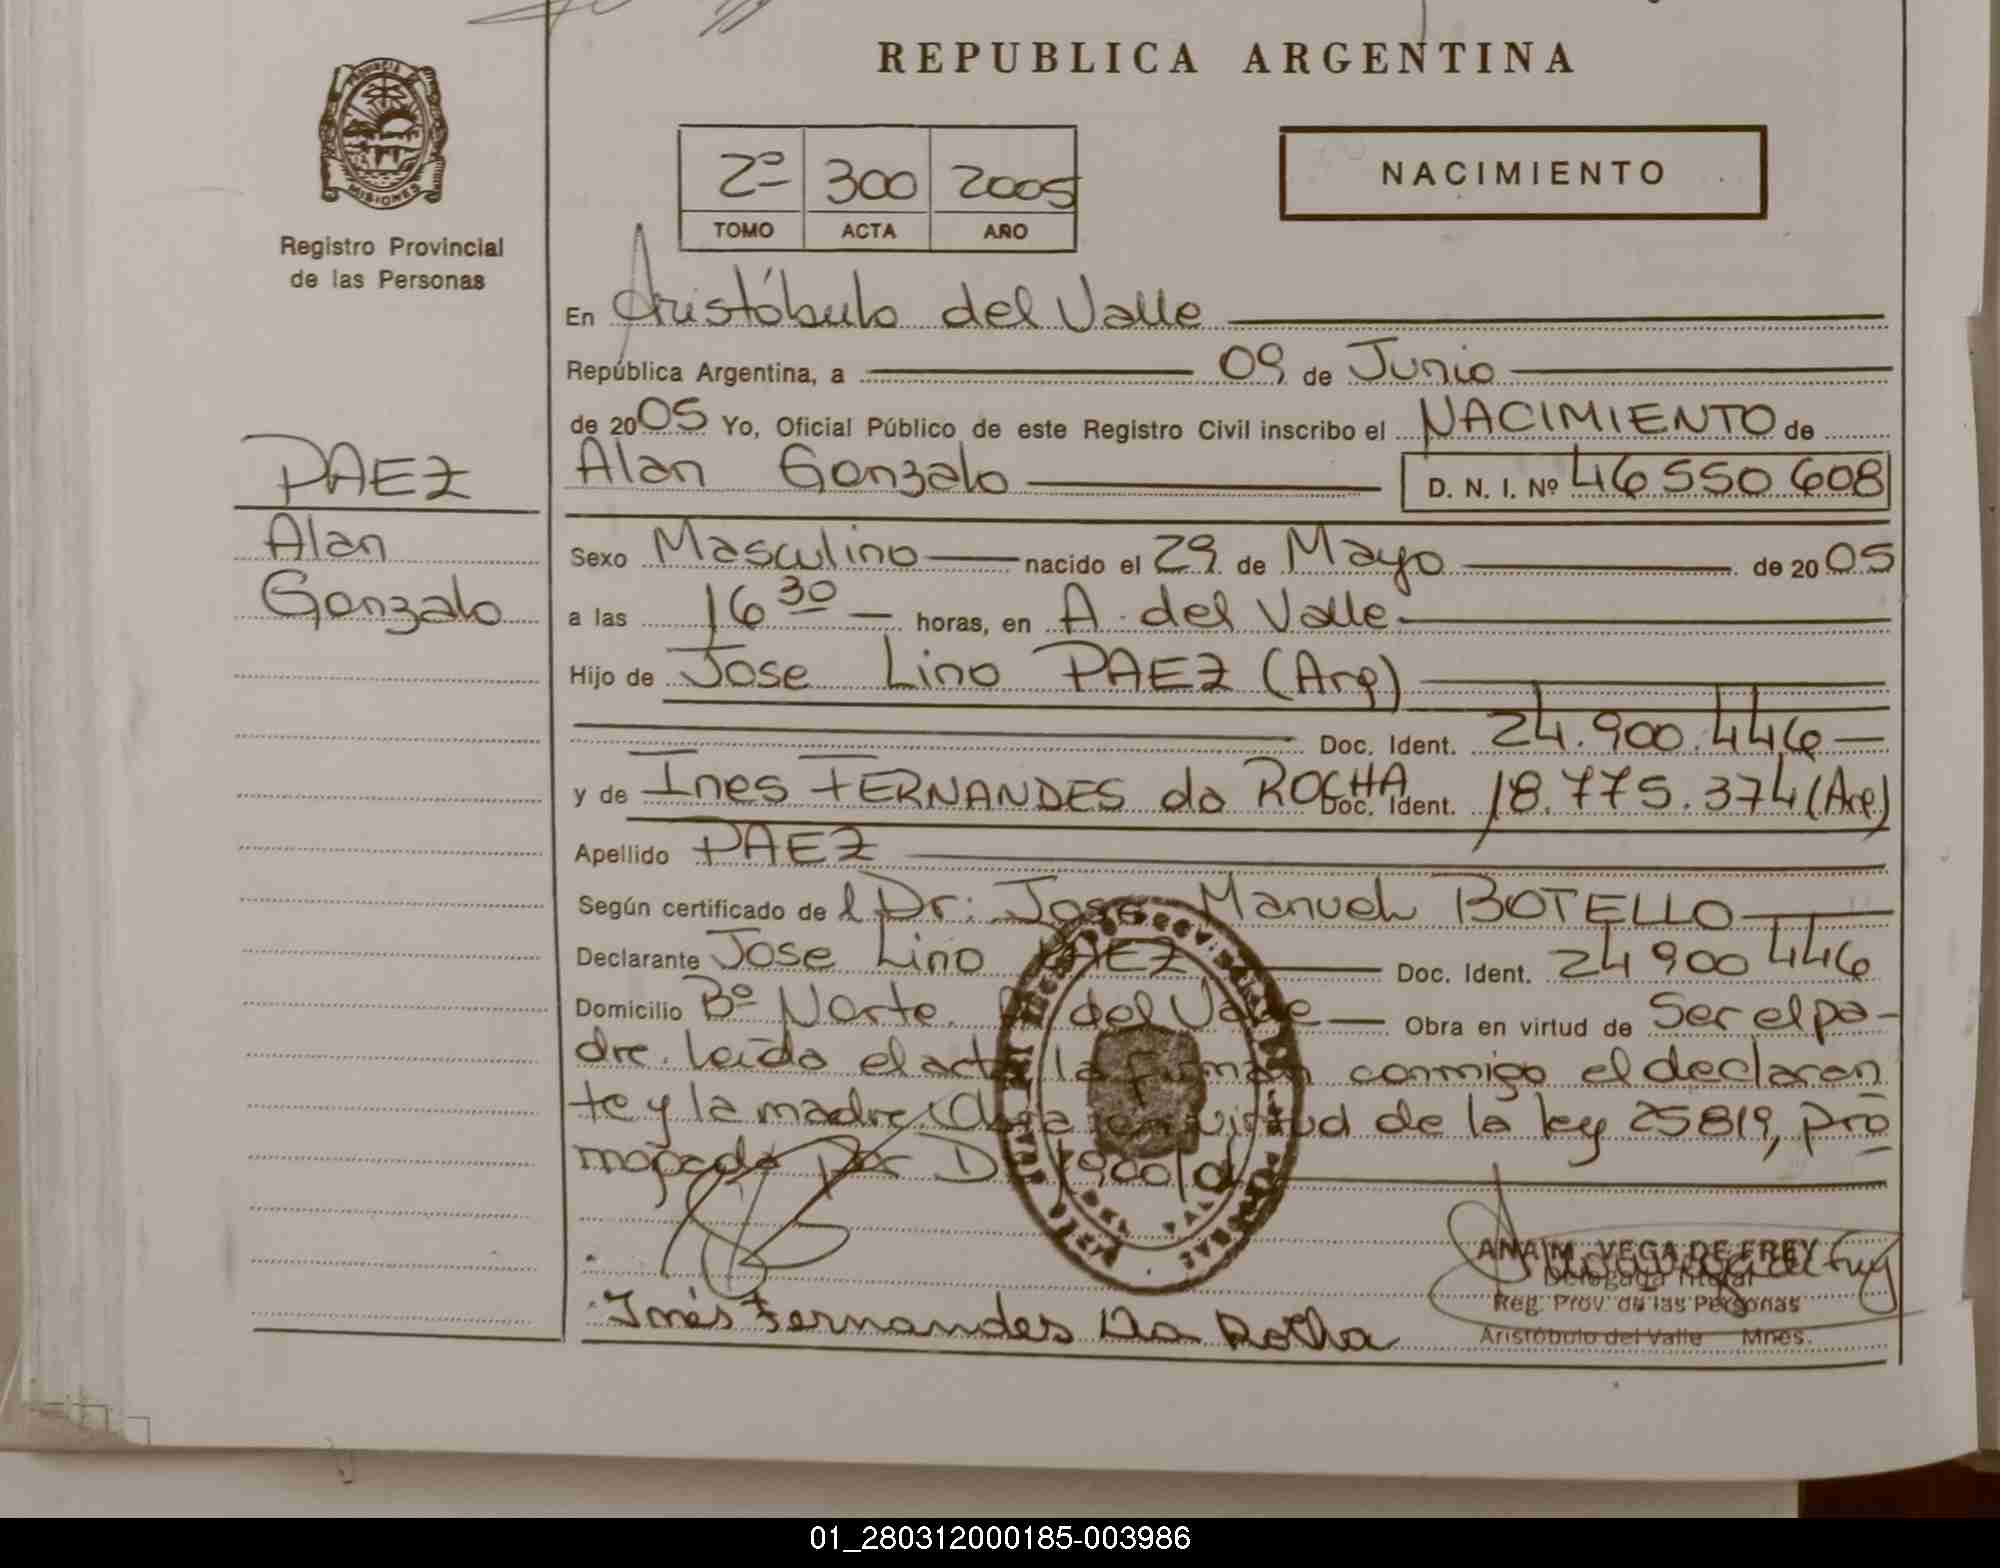 REPUBLICA ARGENTINA
PROVINCIA
MISIONES
Registro Provincial
de las Personas
2º 300 2005
TOMO ACTA AÑO
NACIMIENTO
En Aristóbulo del Valle
República Argentina, a 09 de Junio
de 2005 Yo, Oficial Público de este Registro Civil inscribo el NACIMIENTO de
Alan Gonzalo D. N. I. Nº 46 550 608
PAEZ
Alan
Gonzalo
Sexo Masculino nacido el 29 de Mayo de 2005
a las 16 30 horas, en A. del Valle
Hijo de Jose Lino PAEZ (Arg)
Doc. Ident. 24.900.446
y de Ines FERNANDES da ROCHA Doc. Ident. 18.775.374 (Arg.)
Apellido PAEZ
Según certificado de l Dr. Jose Manuel BOTELLO
Declarante Jose Lino PAEZ Doc. Ident. 24 900 446
Domicilio Bº Norte. A. del Valle Obra en virtud de Ser el pa-
dre. Leida el acta la firman conmigo el declaran
te y la madre. Obra en virtud de la ley 25819, pro
por D
Inés Fernandes Da Rocha
ANA M. VEGA DE FREY
Delegada Titular
Reg. Prov. de las Personas
Aristóbulo del Valle Mnes.
01_280312000185-003986